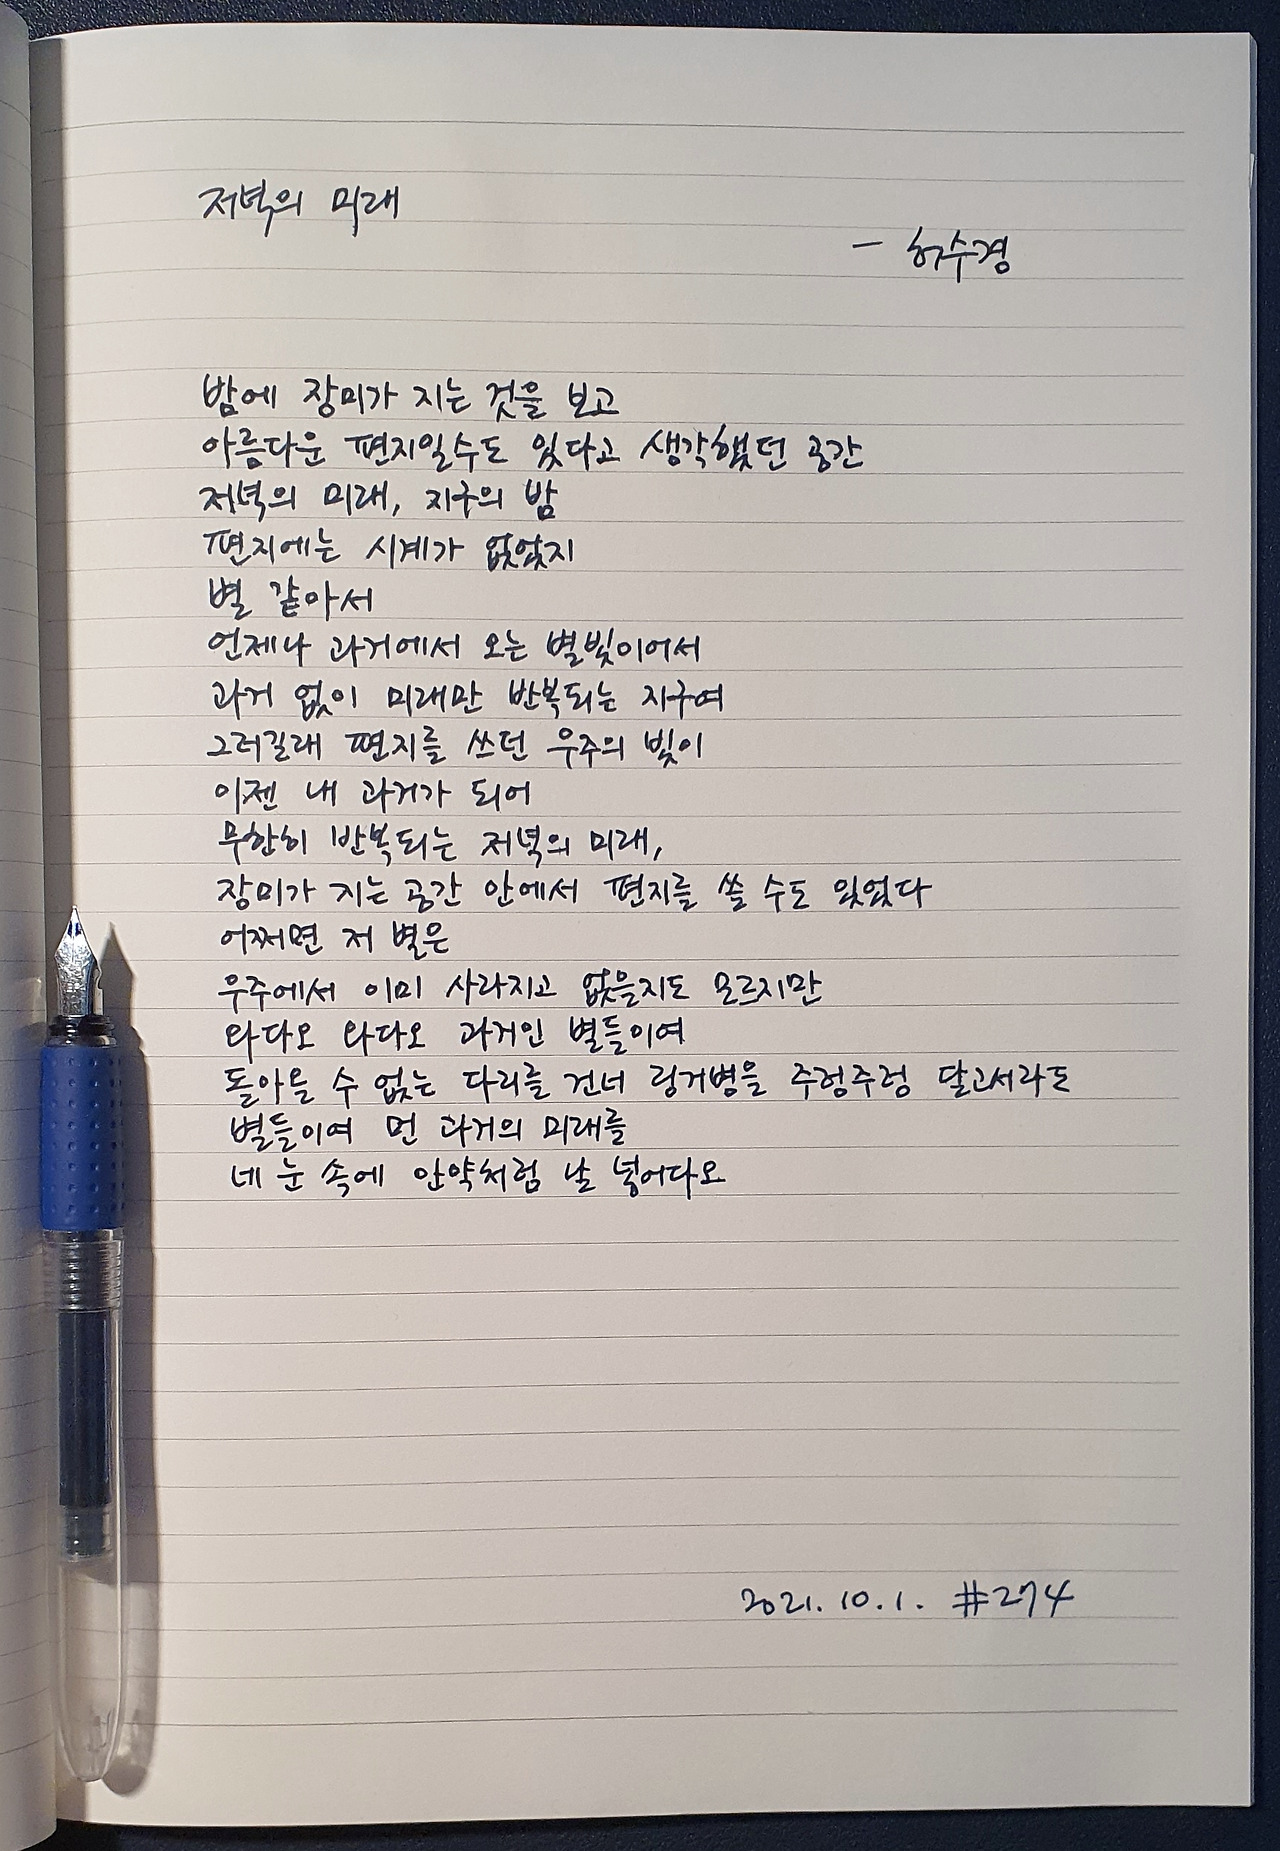 저녁의 미래
- 허수경
밤에 장미가 지는 것을 보고
아름다운 편지일수도 있다고 생각했던 공간
저녁의 미래, 지구의 밤
편지에는 시계가 없었지
별 같아서
언제나 과거에서 오는 별빛이어서
과거 없이 미래만 반복되는 지구여
그러길래 편지를 쓰던 우주의 빛이
이젠 내 과거가 되어
무한히 반복되는 저녁의 미래,
장미가 지는 공간 안에서 편지를 쓸 수도 있었다
어쩌면 저 별은
우주에서 이미 사라지고 없을지도 모르지만
와다오 와다오 과거인 별들이여
돌아올 수 없는 다리를 건너 링거병을 주렁주렁 달고서라도
별들이여 먼 과거의 미래를
네 눈 속에 안약처럼 날 넣어다오
2021. 10. 1. #274